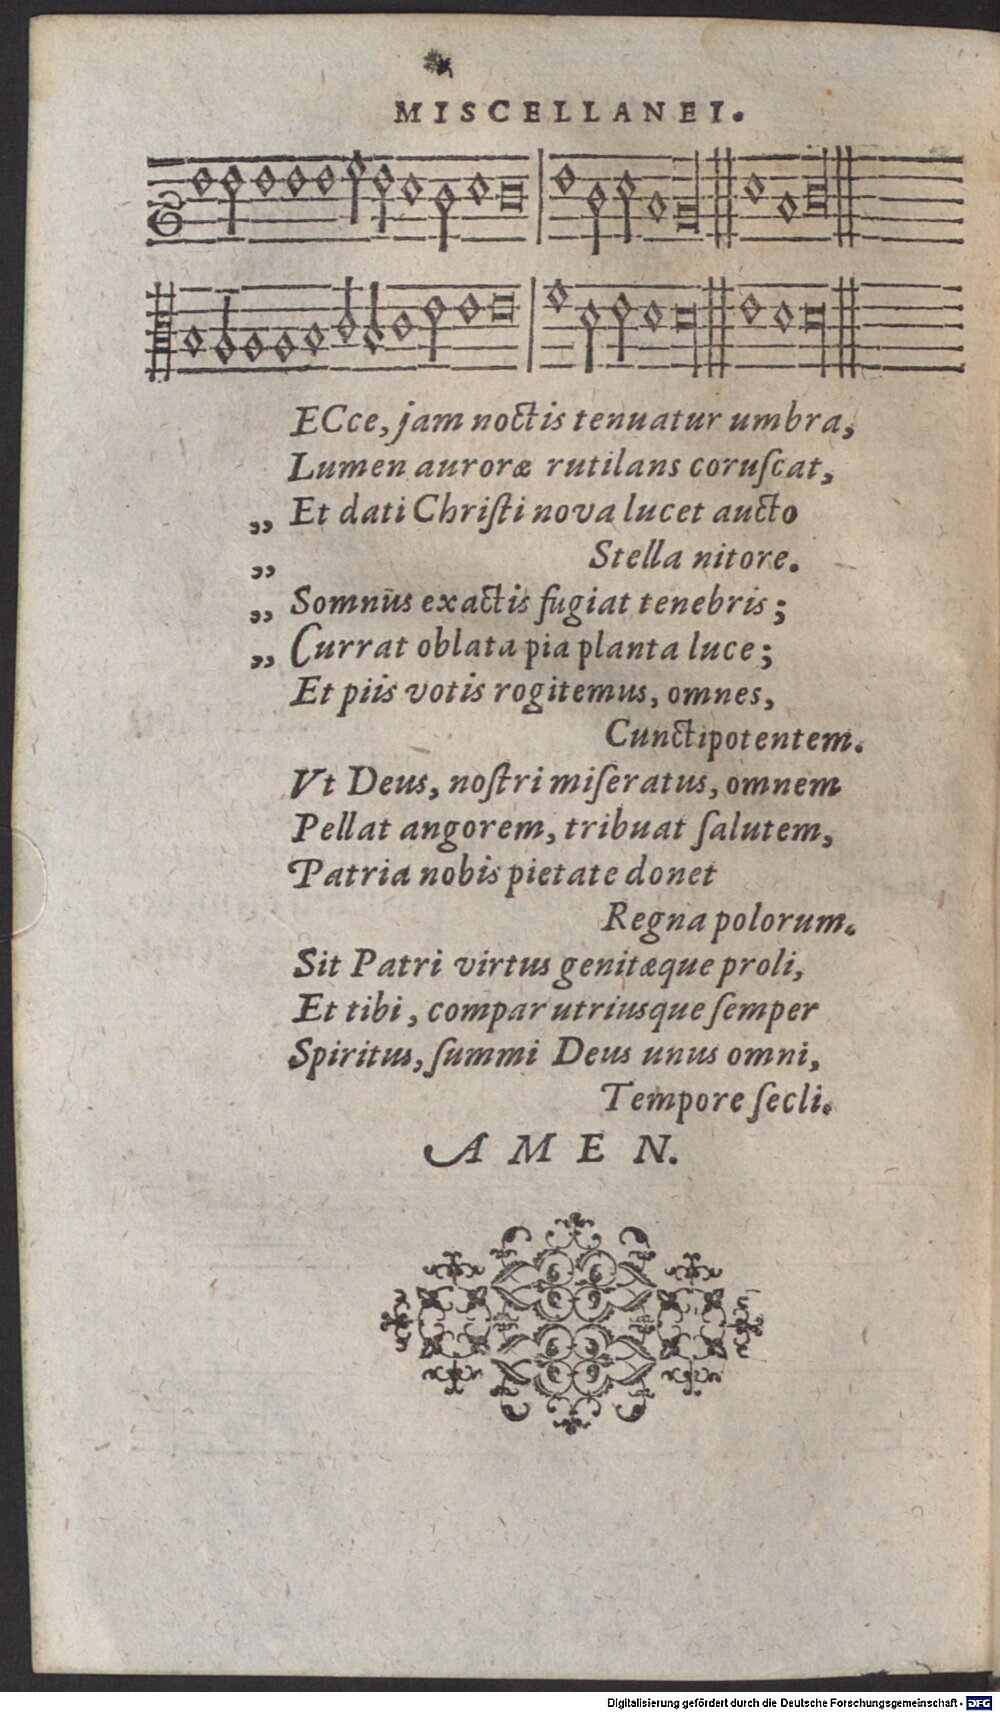 MISCELLANEI.
ECce, jam noctis tenuatur umbra,
Lumen auroræ rutilans coruſcat,
„ Et dati Chriſti nova lucet aucto
„ Stella nitore.
„ Somnus exactis fugiat tenebris;
„ Currat oblata pia planta luce;
Et piis votis rogitemus, omnes,
Cunctipotentem.
Vt Deus, noſtri miſeratus, omnem
Pellat angorem, tribuat ſalutem,
Patria nobis pietate donet
Regna polorum.
Sit Patri virtus genitæque proli,
Et tibi, compar utriusque ſemper
Spiritus, ſummi Deus unus omni,
Tempore ſecli.
AMEN.
Digitalisierung gefördert durch die Deutsche Forschungsgemeinschaft - DFG